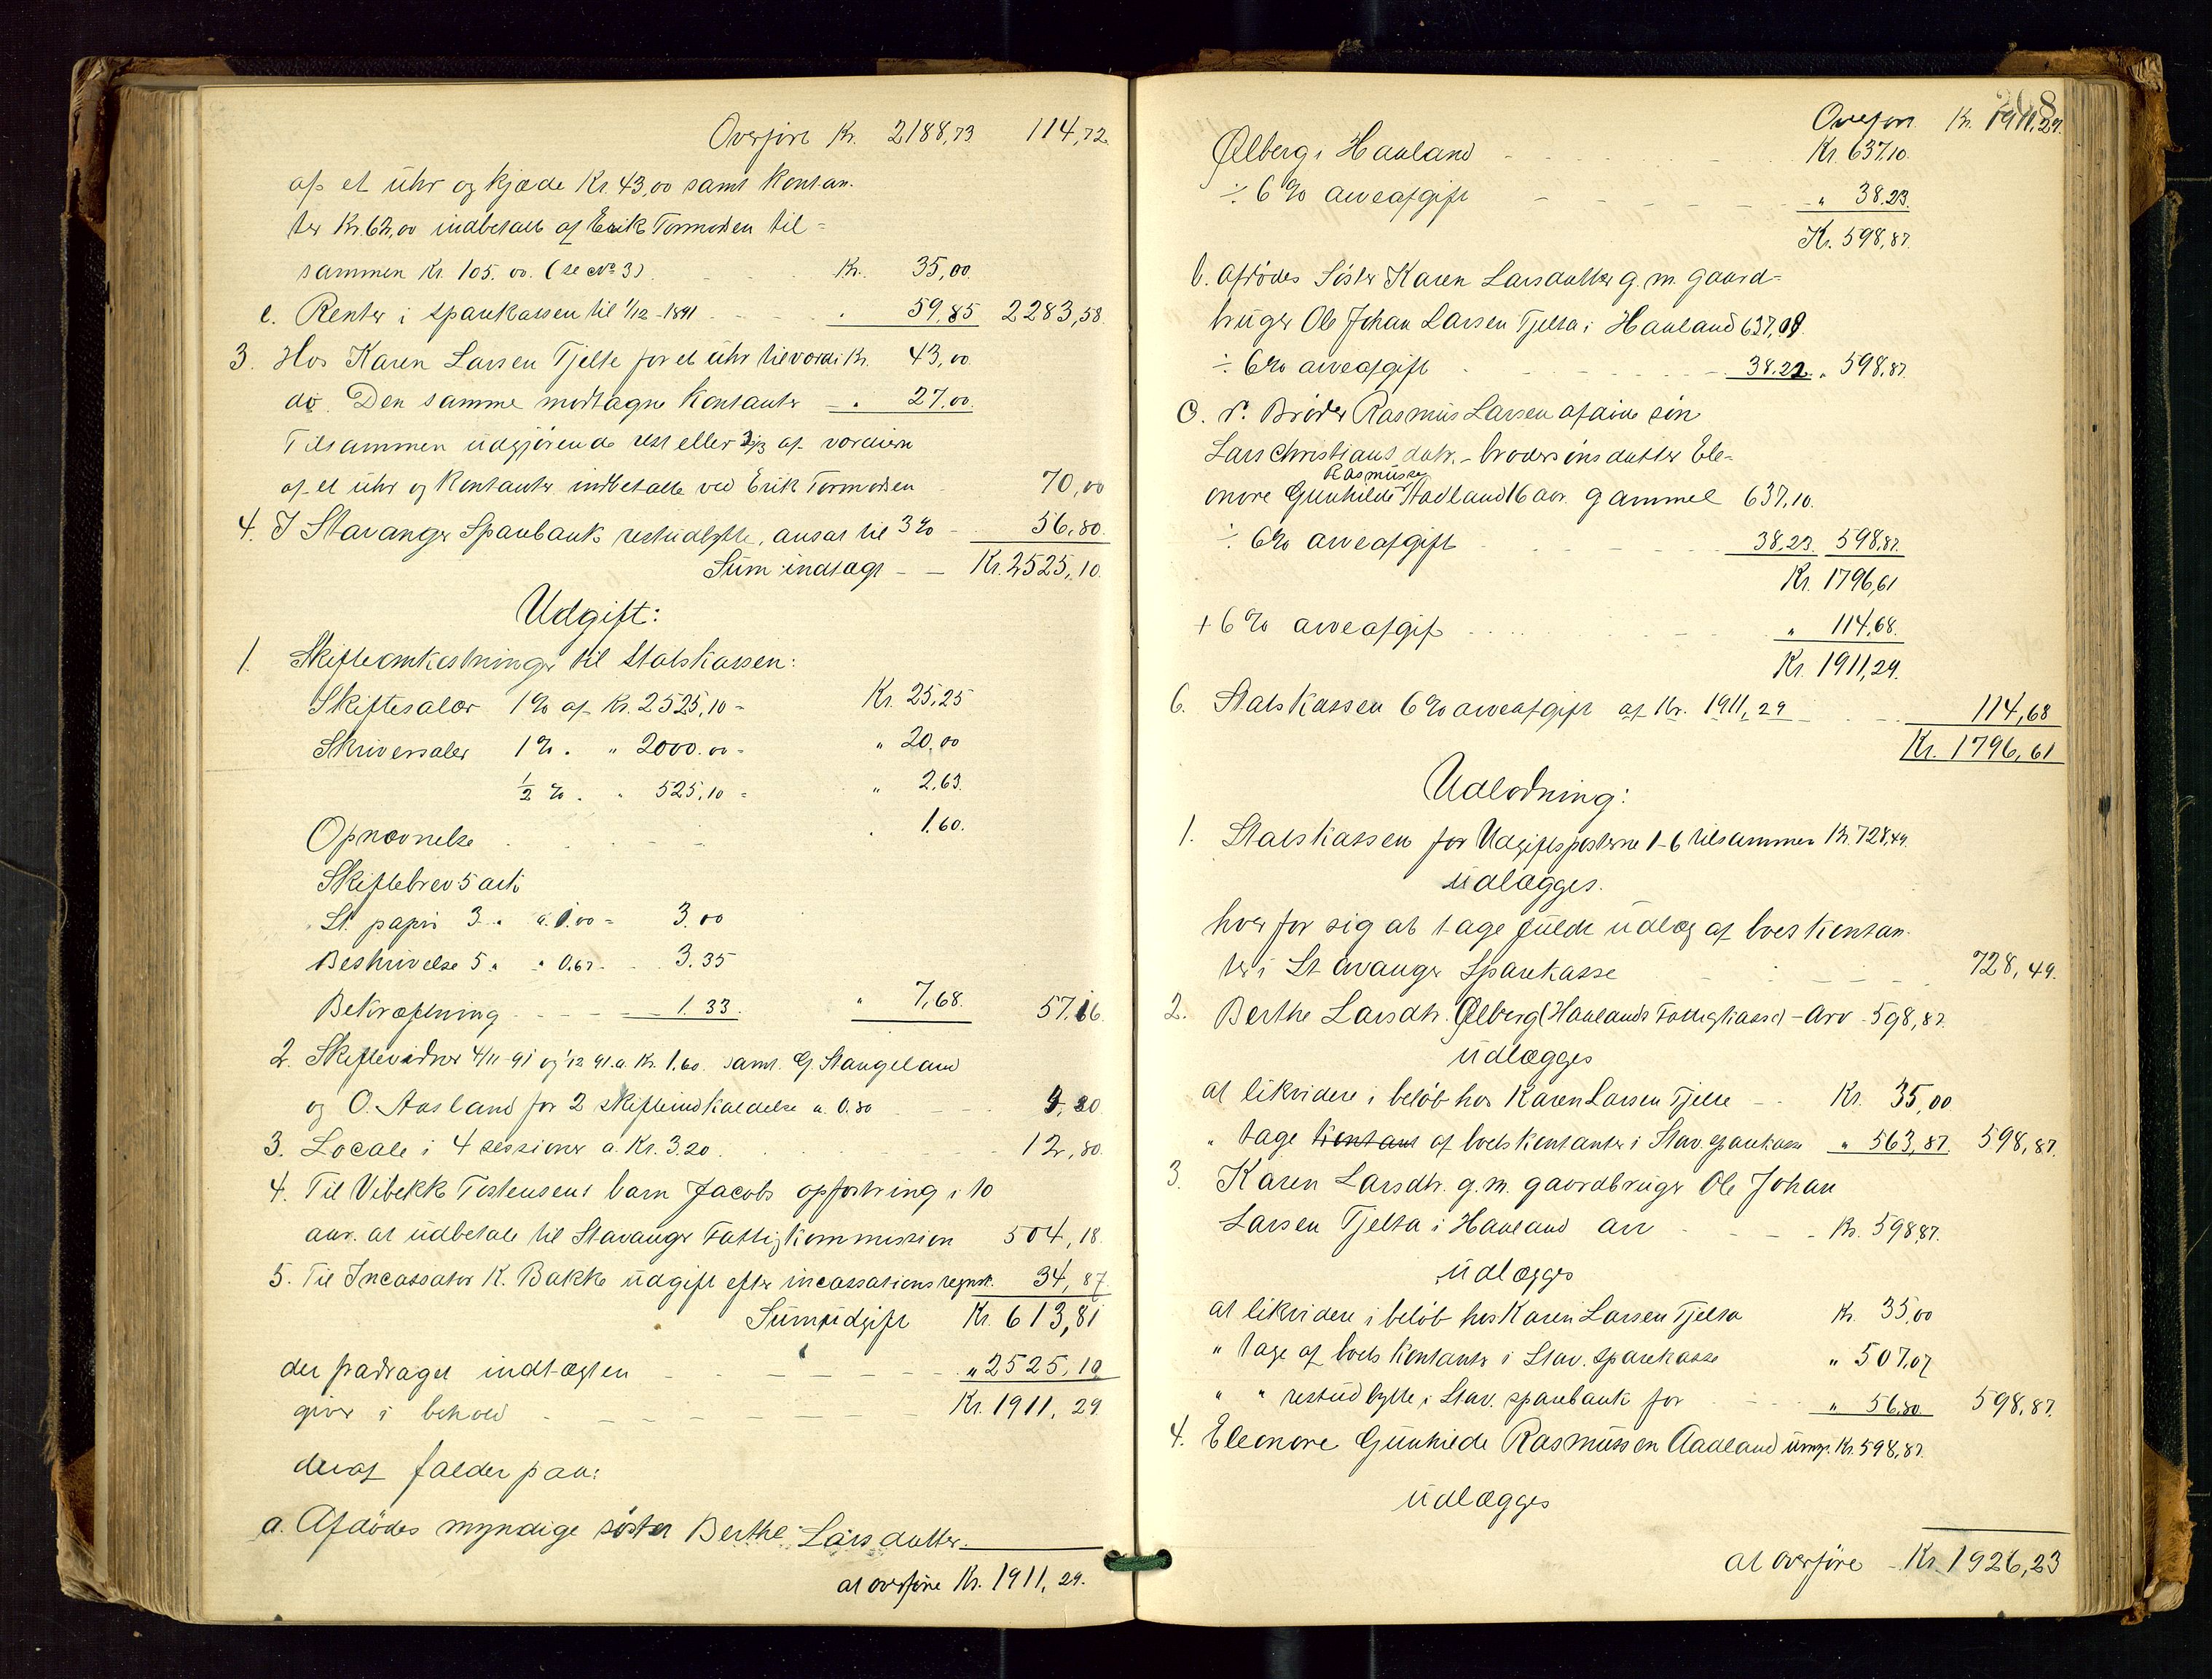 Overføre Kr. 2188,73 114,72
af et uhr og kjæde Kr. 43,00 samt kontan-
ter Kr. 62,00 indbetalt af Erik Tormodsen til=
sammen Kr. 105.00. (se No 3) Kr. 35,00
e. Renter i sparekassen til 1/12-1891 " 59,85 2283,58
3. Hos Karen Larsen Tjelte for et uhr til værdi Kr. 43,00
do. Den samme modtagne kontanter - " 27,00.
Tilsammen udgjørende rest eller 2/3 af værdien
af et uhr og kontanter indbetalte ved Erik Tormodsen 70,00
4. I Stavanger Sparebank restudbytte, ansat til 3% - 56,80
Sum indtægt - - Kr. 2525,10.
Udgift:
1. Skifteomkostninger til Statskassen:
Skiftesalær 1% af Kr. 2525,10 = Kr. 25,25
Skriversalær 1% " " 2000.00 = " 20,00
1/2 % " " 525,10 = " 2,63.
Opnævnelse " 1.60.
Skiftebrev 5 ark
St. papir 3 " á 1.00 = 3.00
Beskrivelse 5 " " 0.67 - 3.35
Bekræftning - - - - 1.33. " 7,68. 57.16
2. Skiftevidner 4/11-91 og 1/12 91. a Kr. 1.60. samt G. Stangeland
og O. Aasland for 2 skifteindkaldelse a 0.80
3. Locale i 4 sessioner a Kr. 3.20. 12,80
4. Til Vibekke Tostensens barn Jacobs opfostring i 10
aar. at udbetale til Stavanger Fattigkommission 504,18
5. Til Incassator K. Bakke udgift efter incassationsregnsk. 34,87
Sum udgift Kr. 613,81
der fradraget indtægten " 2525,10
giver i behold Kr. 1911,29
deraf falder paa:
a. Afdødes myndige søster Berthe Larsdatter.
at overføre Kr. 1911,29.
Overført Kr. 1911,29.
Ølberg i Haaland Kr. 637,10.
÷ 6% arveafgift " 38.23.
Kr. 598,87.
b. Afdødes Søster Karen Larsdatter g. m. gaard=
bruger Ole Johan Larsen Tjelta i Haaland 637,09.
÷ 6% arveafgift 38.22. " 598,87.
c. do. Broder Rasmus Larsen afdøde søn
Lars Christians datr. - brodersøns datter Ele-
Rasmussen
onore Gunhilde Aadland 16 aar. gammel 637,10.
÷ 6% arveafgift 38,23. 598,87.
Kr. 1796,61
+ 6% arveafgift " 114,68.
Kr. 1911,29.
6. Statskassen 6% arveafgift af Kr. 1911,29 114,68
Kr. 1796,61
Udlodning:
1. Statskassen for Udgiftsposterne 1-6 tilsammen Kr. 728,49.
udlægges.
hver for sig at tage fulde udlæg af boets kontan-
ter i Stavanger Sparekasse 728,49.
2. Berthe Larsdtr. Ølberg (Haalands Fattigkasse) - Arv - 598,87.
udlægges
at likvidere i beløb hos Karen Larsen Tjelte - Kr. 35,00
" tage kontant af boets kontanter i Stav. sparekasse " 563,87. 598,87.
3. Karen Larsdtr. g. m. gaardbruger Ole Johan
Larsen Tjelta i Haaland arv - - - Kr. 598,87.
udlægges
at likvidere i beløb hos Karen Larsen Tjelta Kr. 35,00
" tage af boets kontanter i Stav. Sparekasse " 507,07
" " restudbytte i Stav. sparebank for " 56,80 598,87.
4. Eleonore Gunhilde Rasmussen Aadland umyn. Kr. 598,87.
udlægges
at overføre - Kr. 1926,23